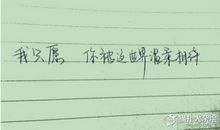 我只愿 你被这世界温柔相待